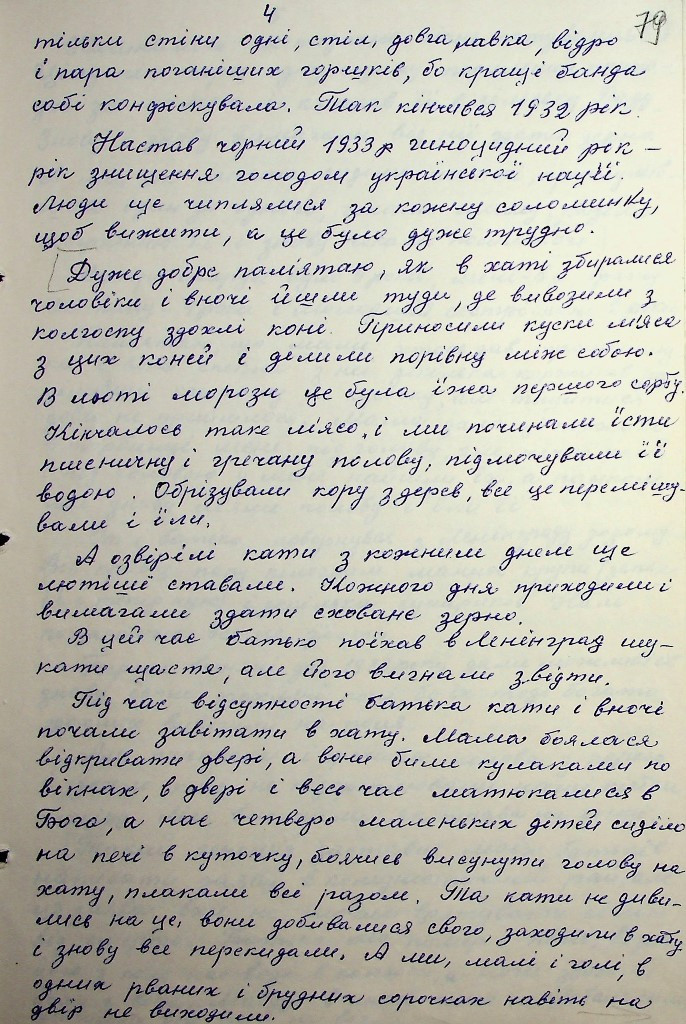 4
79
тільки стіни одні, стіл, довга лавка, відро
і пара поганіших горшків, бо кращі банда
собі конфіскувала. Так кінчився 1932 рік.
Настав чорний 1933 р геноцидний рік –
рік знищення голодом української нації.
Люди ще чиплялися за кожну соломинку,
щоб вижити, а це було дуже трудно.
Дуже добре пам'ятаю, як в хаті збиралися
чоловіки і вночі йшли туди, де вивозили з
колгоспу здохлі коні. Приносили куски м'яса
з цих коней і ділили порівну між собою.
В люті морози це була їжа першого сорту.
Кінчалось таке м'ясо, і ми починали їсти
пшеничну і гречану полову, підмочували її
водою. Обрізували кору з дерев, все це перемішу-
вали і їли.
А озвірілі кати з кожним днем ще
лютіші ставали. Кожного дня приходили і
вимагали здати сховане зерно.
В цей час батько поїхав в Ленінград шу-
кати щастя, але його вигнали звідти.
Під час відсутності батька кати і вночі
почали завітати в хату. Мама боялася
відкривати двері, а вони били кулаками по
вікнах, в двері і весь час матюкалися в
Бога, а нас четверо маленьких дітей сиділо
на печі в куточку, боячись висунути голову на
хату, плакали всі разом. Та кати не диви-
лись на це, вони добивалися свого, заходили в хату
і знову все перекидали. А ми, малі і голі, в
одних рваних і брудних сорочках навіть на
двір не виходили.